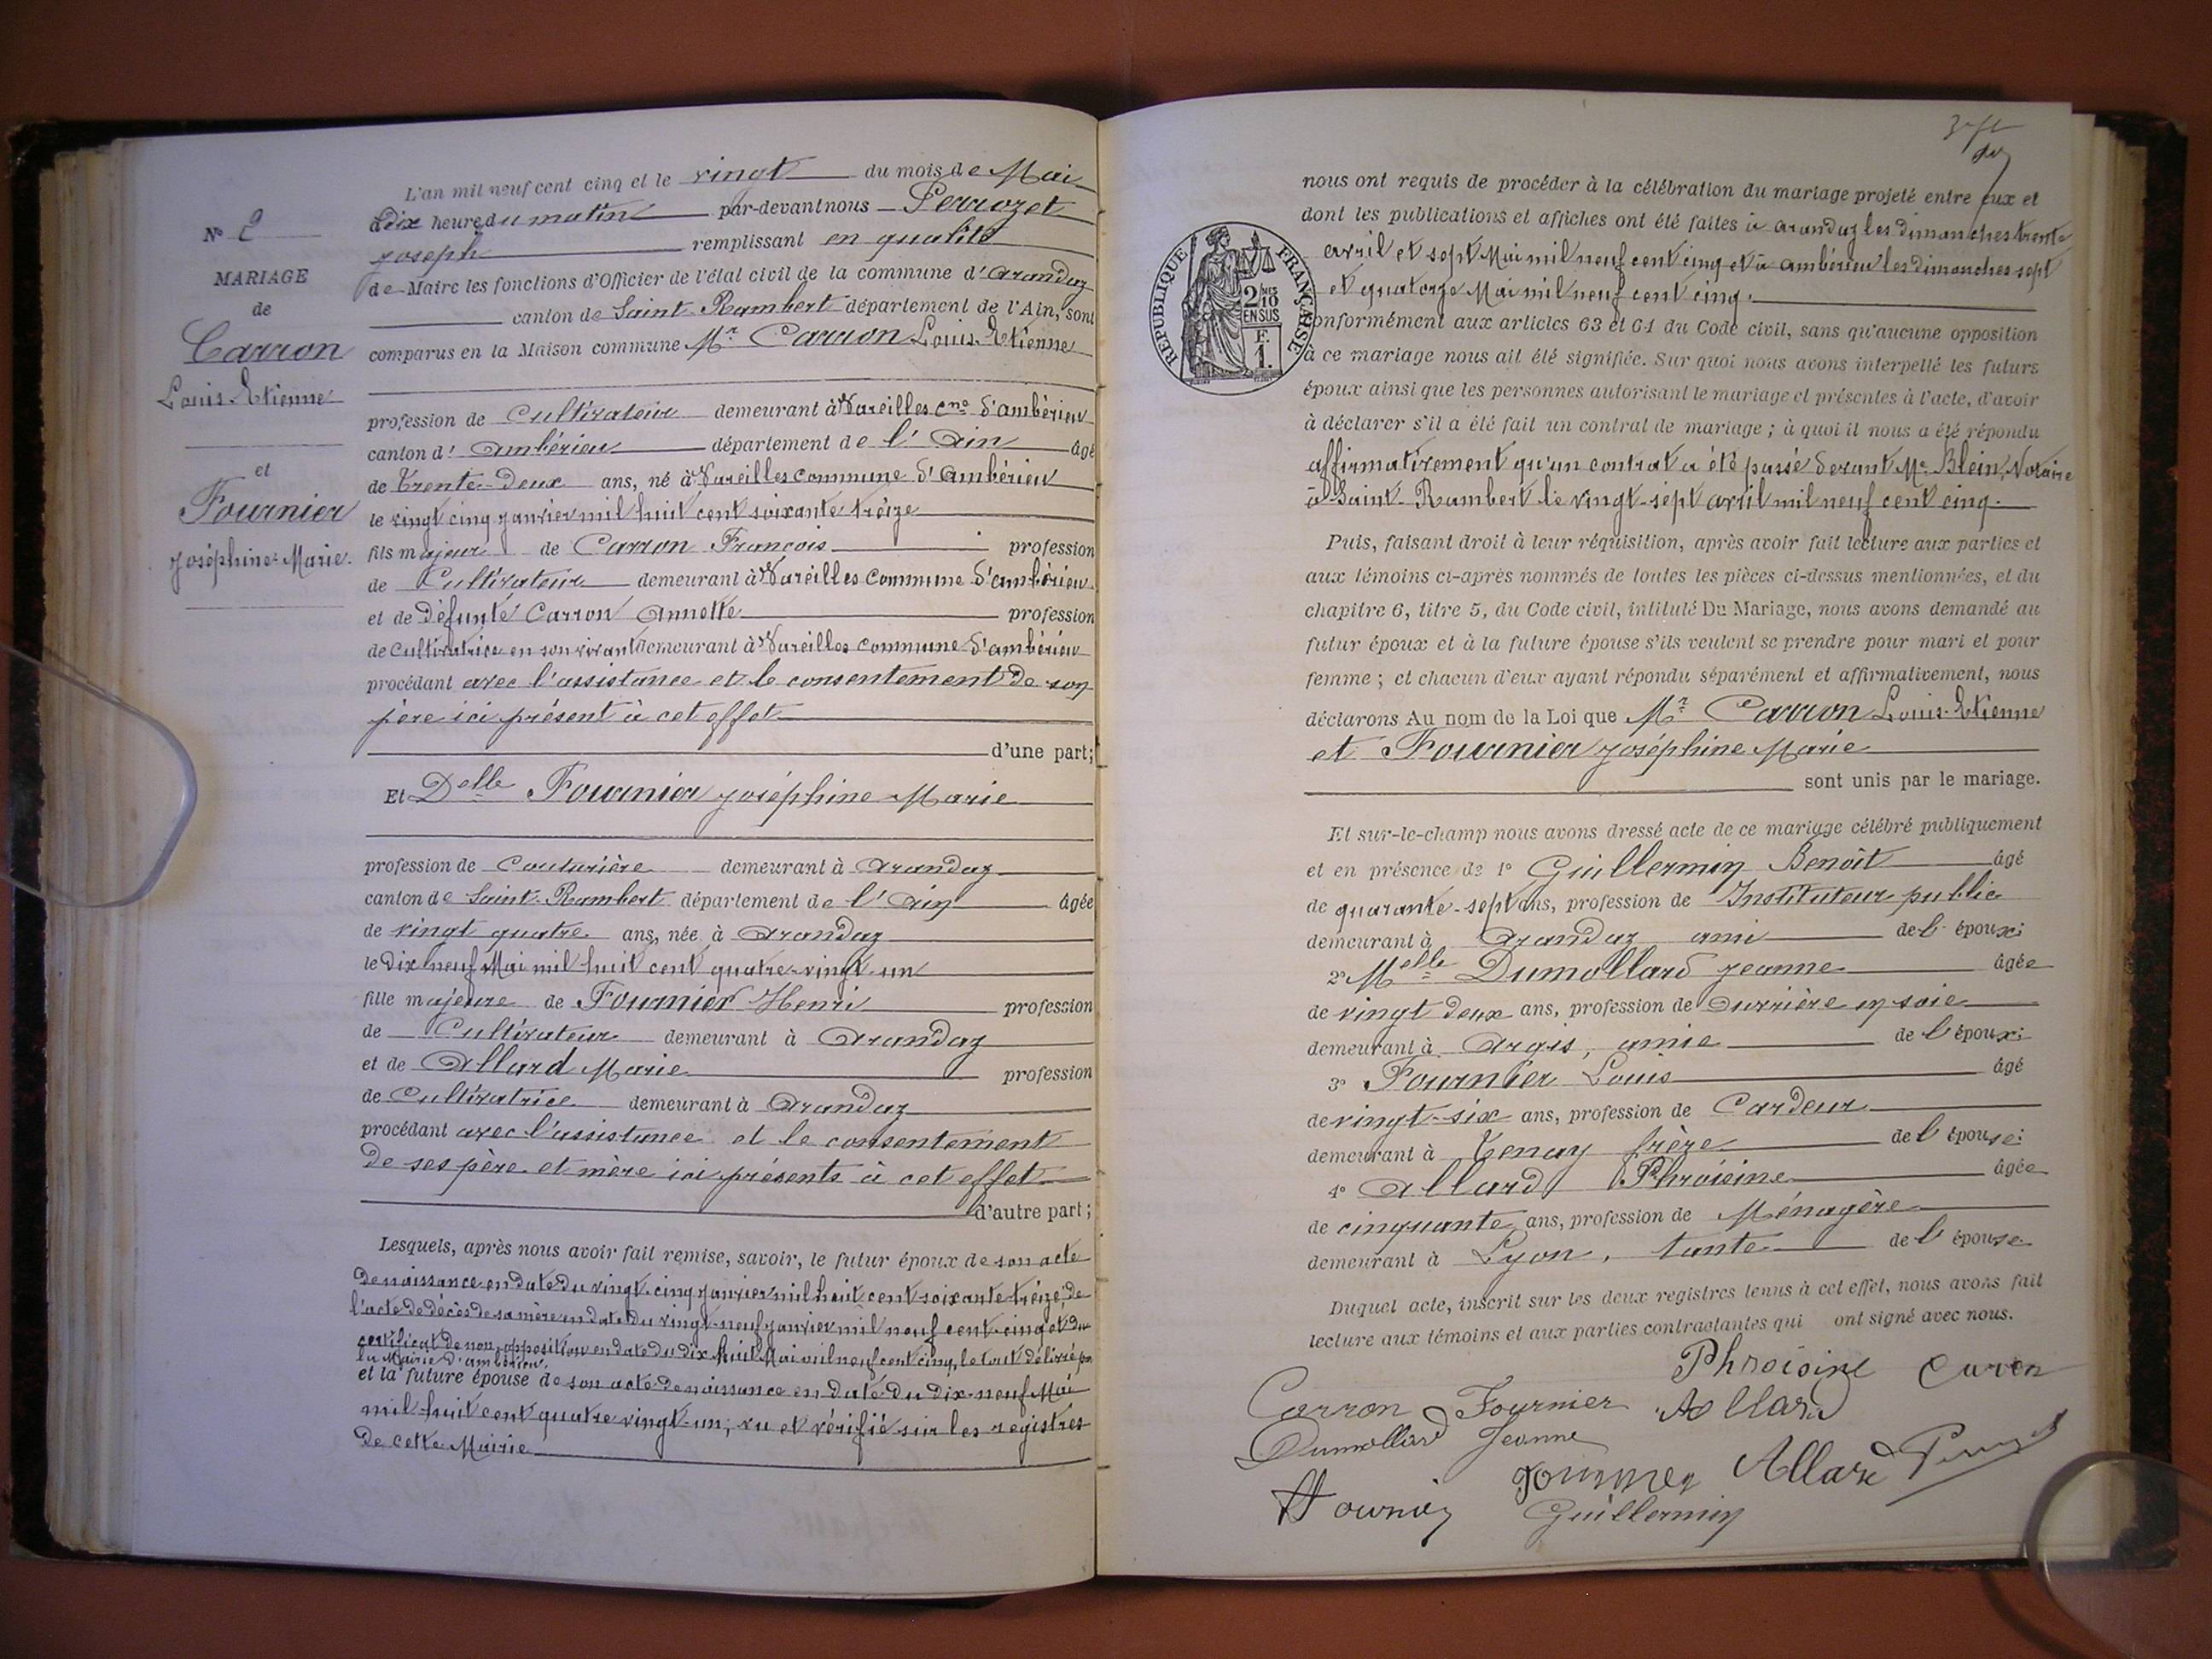 L'an mil neuf cent cinq et le vingt du mois de Mai
à Dix heure du matin par-devant nous Perrozet
joseph remplissant en qualité
de Maire les fonctions d'Officier de l'état civil de la commune d'Arandaz
canton de Saint-Rambert département de l'Ain, sont
comparus en la Maison commune Mr Carron Louis-Etienne
profession de Cultivateur demeurant à Vareilles cne d'ambérieu
canton d'ambérieu département de l'Ain âgé
de Trente-Deux ans, né à Vareilles commune d'ambérieu
le vingt cinq janvier mil huit cent soixante treize
fils majeur de Carron François profession
de Cultivateur demeurant à Vareilles commune d'ambérieu
et de Défunte Carron Annette profession
de cultivatrice en son vivant demeurant à Vareilles commune d'ambérieu
procédant avec l'assistance et le consentement de son
père ici présent à cet effet
d'une part;
Et Delle Fournier joséphine Marie
profession de Couturière demeurant à Arandaz
canton de Saint-Rambert département de l'Ain âgée
de vingt quatre ans, née à Arandaz
le dix neuf Mai mil huit cent quatre-vingt-un
fille majeure de Fournier Henri profession
de Cultivateur demeurant à Arandaz
et de Allard Marie profession
de Cultivatrice demeurant à Arandaz
procédant avec l'assistance et le consentement
de ses père et mère ici présents à cet effet
d'autre part;
Lesquels, après nous avoir fait remise, savoir, le futur époux de son acte
de naissance en date du vingt-cinq janvier mil huit cent soixante treize, de
l'acte de décès de sa mère en date du vingt-neuf janvier mil neuf cent cinq et du
certificat de non-opposition en date du dix huit Mai mil neuf cent cinq, le tout délivré par
la Mairie d'ambérieu.
et la future épouse de son acte de naissance en date du dix-neuf Mai
mil huit cent quatre vingt-un; vu et vérifié sur les registres
de cette Mairie
N° 2
MARIAGE
de
Carron
Louis-Etienne
et
Fournier
Joséphine-Marie.
nous ont requis de procéder à la célébration du mariage projeté entre eux et
dont les publications et affiches ont été faites à arandaz les dimanches trente
avril et sept Mai mil neuf cent cinq et à ambérieu les dimanches sept
et quatorze Mai mil neuf cent cinq.
conformément aux articles 63 et 64 du Code civil, sans qu'aucune opposition
à ce mariage nous ait été signifiée. Sur quoi nous avons interpellé les futurs
époux ainsi que les personnes autorisant le mariage et présentes à l'acte, d'avoir
à déclarer s'il a été fait un contrat de mariage; à quoi il nous a été répondu
affirmativement qu'un contrat a été passé devant Me Blein, Notaire
à Saint-Rambert le vingt-sept avril mil neuf cent cinq.
Puis, faisant droit à leur réquisition, après avoir fait lecture aux parties et
aux témoins ci-après nommés de toutes les pièces ci-dessus mentionnées, et du
chapitre 6, titre 5, du Code civil, intitulé Du Mariage, nous avons demandé au
futur époux et à la future épouse s'ils veulent se prendre pour mari et pour
femme; et chacun d'eux ayant répondu séparément et affirmativement, nous
déclarons Au nom de la Loi que Mr Carron Louis-Etienne
et Fournier joséphine Marie
sont unis par le mariage.
Et sur-le-champ nous avons dressé acte de ce mariage célébré publiquement
et en présence de 1° Guillermin Benoît âgé
de quarante-sept ans, profession de Instituteur public
demeurant à Arandaz ami de l'époux;
2° Melle Dumollard jeanne âgée
de vingt deux ans, profession de Ouvrière en soie
demeurant à Argis, amie de l'époux;
3° Fournier Louis âgé
de vingt-six ans, profession de Cardeur
demeurant à Tenay frère de l'épouse;
4° Allard Phroisine âgée
de cinquante ans, profession de Ménagère
demeurant à Lyon, tante de l'épouse
Duquel acte, inscrit sur les deux registres tenus à cet effet, nous avons fait
lecture aux témoins et aux parties contractantes qui ont signé avec nous.
Phroisine Caron
Carron Fournier Allard
Dumollard Jeanne
Fournier Allard
Guillermin
RÉPUBLIQUE FRANÇAISE
2 MES
10
EN SUS
F.
1.